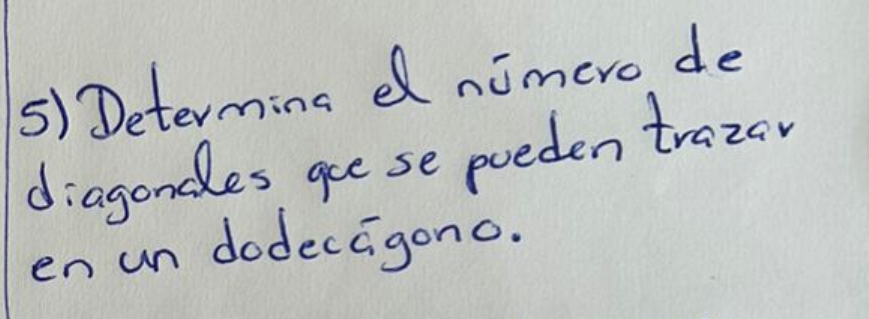 5) Determina el número de
diagonales que se pueden trazar
en un dodecágono.